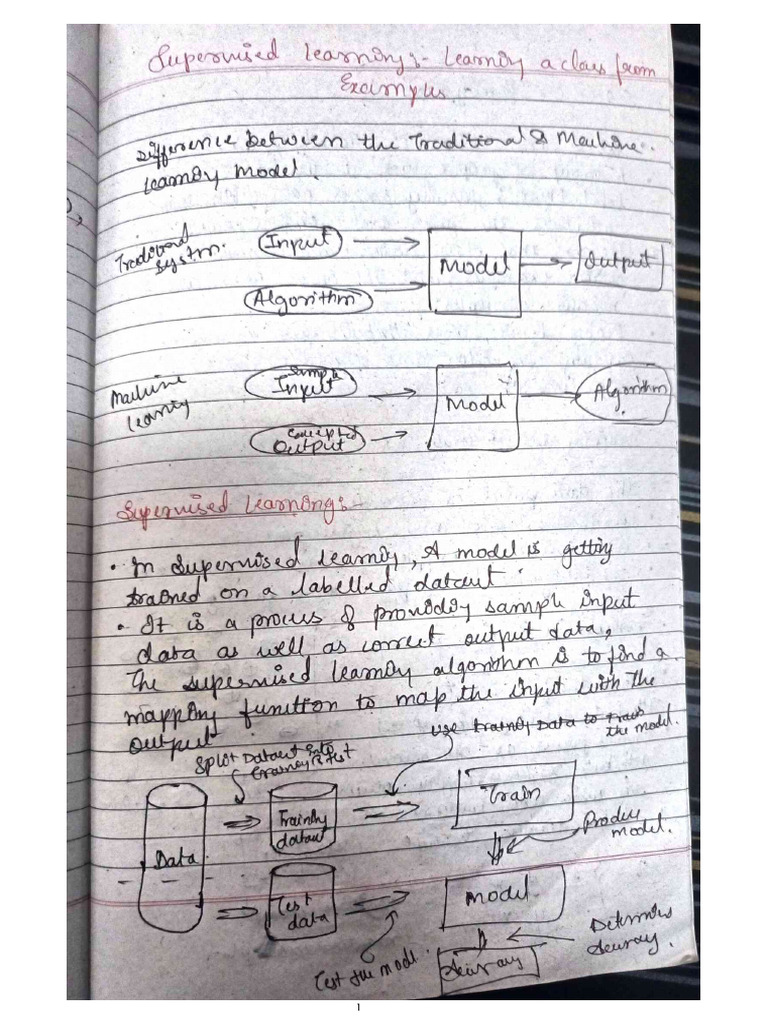 Supervised Learning:- Learning a class from
Examples
Difference between the Traditional & Machine
Learning Model.
Traditional
System.
Input
Algorithm
Model
Output
Machine
Learning
Sample
Input
Output
Model
Algorithm
Supervised Learning:-
• In Supervised learning, A model is getting
trained on a labelled dataset.
• It is a process of providing sample input
data as well as correct output data,
The supervised learning algorithm is to find a
mapping function to map the input with the
output
Split Dataset into
training & test
use training Data to train
the model.
Data
Training
dataset
Train
Produce
model.
Test
data
Model
Test the model.
Determine
Accuracy.
Accuracy
1